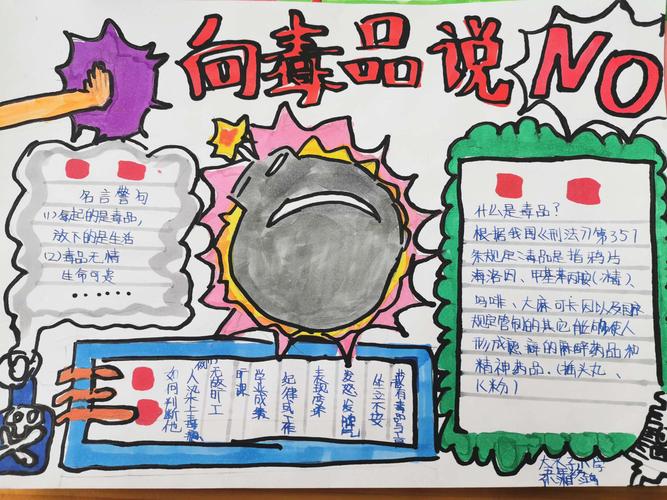 向毒品说NO
名言警句
(1)拿起的是毒品,
放下的是生活
(2)毒品无情
生命可是
.......
什么是毒品?
根据我国《刑法》第357
条规定:毒品是指鸦片
海洛因、甲基苯丙胺(冰精)、
吗啡、大麻可卡因以及国家
规定管制的其它能够使人
形成瘾癖的麻醉药品和
精神药品、(摇头丸、
K粉)
如何判断他
人染上毒瘾
(1)无故旷工
旷课
学业成绩
纪律或工作
表现变差
易怒发脾气
坐立不安
大小学